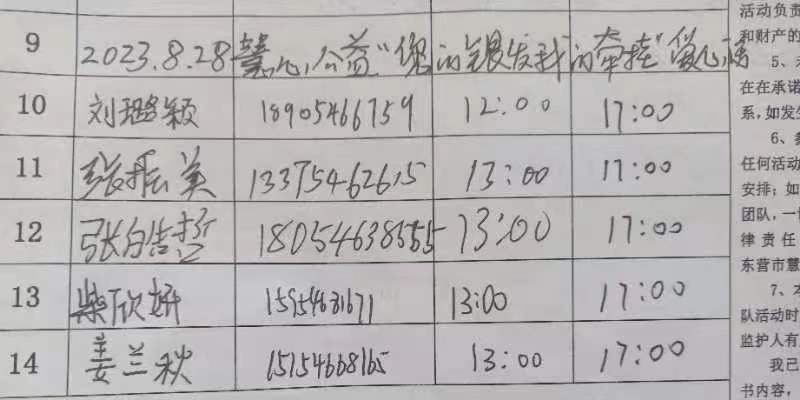 9 2023.8.28 慧心公益"您的银发我的牵挂"
10 刘璐颖 18905466759 12:00 17:00
11 张振美 13375462615 13:00 17:00
12 张 18054638555 13:00 17:00
13 柴欣妍 15954681671 13:00 17:00
14 姜兰秋 15154668165 13:00 17:00
活动负责
和财产的
5、
在在承诺
系,如发生
6、
任何活动
安排;如
团队,一
律责任
东营市慧
7、
队活动时
监护人有
我已
书内容,